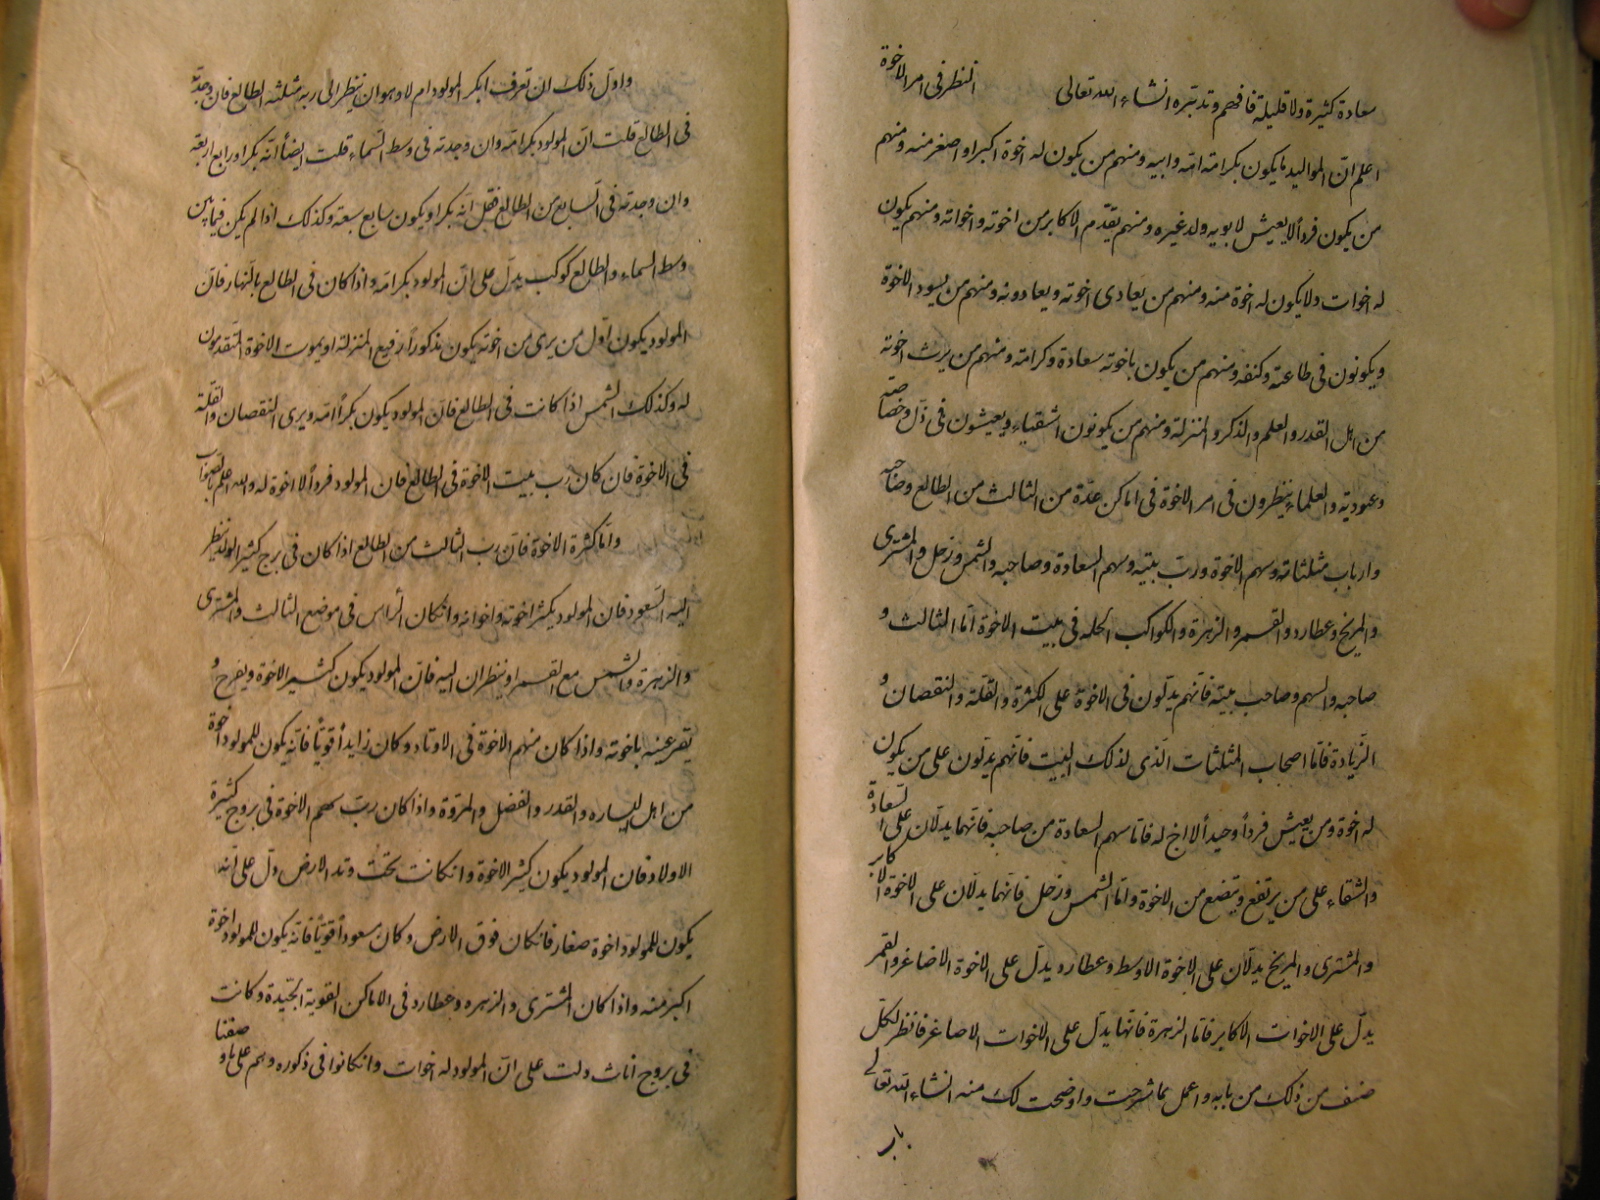 سعادة كثيرة ولا قليلة فافهم وتدبره انشاء الله تعالى النظر فى امر الاخوة
اعلم ان المواليد ما يكون بكر امه وابيه ومنهم من يكون له اخوة اكبر او اصغر منه ومنهم
من يكون فرداً لا يعيش لابويه ولد غيره ومنهم يقدّم الاكابر من اخوته واخواته ومنهم يكون
له اخوات ولا يكون له اخوة منه ومنهم من يعادى اخوته ويعادونه ومنهم من يسود الاخوة
ويكونون فى طاعته وكنفه ومنهم من يكون باخوته سعادة وكرامة ومنهم من يرث اخوته
من اهل القدر والعلم والذكر والمنزلة ومنهم من يكونون اشقياء ويعيشون فى ذل وخصاصة
وعبودية والعلماء ينظرون فى امر الاخوة فى اماكن عدّة من الثالث من الطالع وصاحبه
وارباب مثلثاته وسهم الاخوة ورب بيته وسهم السعادة وصاحبه والشمس وزحل والمشترى
والمريخ وعطارد والقمر والزهرة والكواكب الحالة فى بيت الاخوة امّا الثالث و
صاحبه والسهم وصاحب بيته فانهم يدلون فى الاخوة على الكثرة والقلة والنقصان و
الزيادة فامّا اصحاب المثلثات الذى لذلك البيت فانهم يدلون على من يكون
له اخوة ومن يعيش فرداً وحيداً لا اخ له فاما سهم السعادة من صاحبه فانهما يدلان على السعادة
والشقاء على من يرتفع ويتضع من الاخوة وامّا الشمس وزحل فانهما يدلان على الاخوة الاكابر
والمشترى والمريخ يدلان على الاخوة الاوسط وعطارد يدلّ على الاخوة الاصاغر والقمر
يدلّ على الاخوات الاكابر فامّا الزهرة فانها يدلّ على الاخوات الاصاغر فانظر لكل
صنف من ذلك من بابه واعمل بما شرحت واوضحت لك منه انشاء الله تعالى
باب
واوّل ذلك ان تعرف ابكر المولود ام لا وهو ان ينظر الى رب مثلثه الطالع فان وجدته
فى الطالع قلت انّ المولود بكر امّه وان وجدته فى وسط السماء قلت ايضاً انه بكر او رابع اربعة
وان وجدته فى السابع من الطالع فقل انه بكر او يكون سابع سبعة وكذلك اذا لم يكن فيما بين
وسط السماء والطالع كوكب يدلّ على انّ المولود بكر امّه واذا كان فى الطالع بالنهار فان
المولود يكون اوّل من يرى من اخوته يكون مذكوراً رفيع المنزلة او يموت الاخوة المتقدمون
له وكذلك الشمس اذا كانت فى الطالع فانّ المولود يكون بكراً امّه ويرى النقصان والقلة
فى الاخوة فان كان رب بيت الاخوة فى الطالع فان المولود فرداً لا اخوة له والله اعلم بالصواب
وامّا كثرة الاخوة فان رب الثالث من الطالع اذا كان فى برج كثير الولد ينظر
اليه السعود فان المولود يكثر اخوته واخواته وانكان الراس فى موضع الثالث والمشترى
والزهرة والشمس مع القمر او ينظران اليه فانّ المولود يكون كثير الاخوة ويفرح و
يقر عينه باخوته واذا كان منهم الاخوة فى الاوتاد وكان زايداً قوياً فانه يكون للمولود اخوة
من اهل اليساره والقدر والفضل والمروّة واذا كان ربّ سهم الاخوة فى بروج كثيرة
الاولاد فان المولود يكون كثير الاخوة وانكانت تحت وتد الارض دلّ على انه
يكون للمولود اخوة صغار فانكان فوق الارض وكان مسعوداً قوياً فانه يكون للمولود اخوة
اكبر منه واذا كان المشترى والزهره وعطارد فى الاماكن القوية الجيدة وكانت
فى بروج اناث دلت على انّ المولود له اخوات وانكانوا فى ذكوره وهم على ما وصفنا